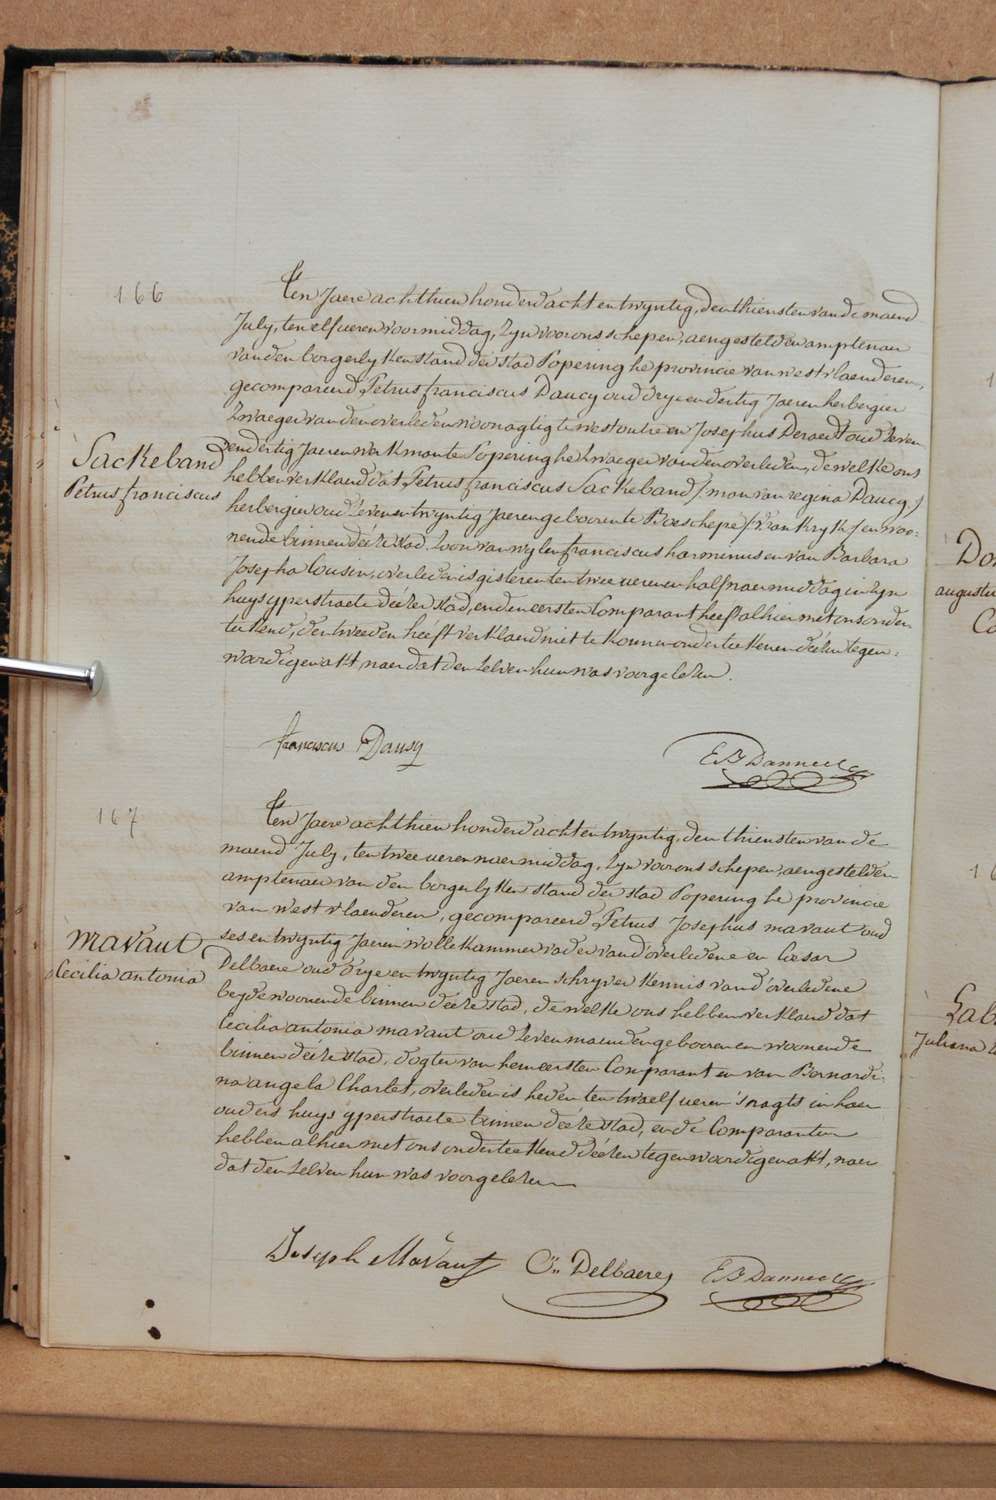 166
Ten Jaere achthien honderd acht en twyntig, den thiensten van de maend
July, ten elf ueren voormiddag, Zyn voor ons schepen, aengestelden amptenaer
van den borgerlyken stand der stad Poperinghe provincie van westvlaenderen,
gecompareerd Petrus franciscus Daucy oud drye en dertig Jaeren herbergier
Zwaeger van den overleden woonagtig te westoutre en Josephus Deraedt oud Zeven
en dertig Jaeren werkman te Poperinghe Zwaeger van den overleden, dewelke ons
Sackeband
Petrus franciscus
hebben verklaerd dat Petrus franciscus Sackeband / man van regina Daucy /
herbergier oud Zeven en twyntig Jaeren gebooren te Boeschepe / vrankryk / en woo=
nende binnen déeze stad, Zoon van wylen franciscus harminus en van Barbara
Josepha Cousin, overleden is gisteren ten twee ueren en half naermiddag in Zyn
huys yperstraete déezer stad, en den eersten Comparant heeft alhier met ons onder=
teekend, den tweeden heéft verklaerd niet te konnen onderteekenen déezen tegen=
wordigen akt, naer dat den Zelven hun was voorgelezen.
franciscus Dausy
E B Danneel
167
Ten Jaere achthien honderd acht en twyntig, den thiensten van de
maend July, ten twee ueren naermiddag, Zyn voor ons schepen, aengestelden
amptenaer van den borgerlyken stand der stad Poperinghe provincie
van westvlaenderen, gecompareerd Petrus Josephus mavaut oud
ses en twyntig Jaeren wollekammer vader vand'overledene en Cesar
mavaut
Cecilia antonia
Delbaere oud drye en twyntig Jaeren schryver kennis vand'overledene
beyde woonende binnen déeze stad, dewelke ons hebben verklaerd dat
Cecilia antonia mavaut oud Zeven maenden gebooren en woonende
binnen déeze stad, dogter van hem eersten Comparant en van Bernardi=
na angela Charlet, overleden is heden ten twaelf ueren 'snagts in haer
ouders huys yperstraete binnen déeze stad, en de Comparanten
hebben alhier met ons onderteekend déezen tegenwordigen akt, naer
dat den Zelven hun was voorgelezen
Joseph Mavaut
C.. Delbaere
E B Danneel
Do
augustu
Co
Juliana